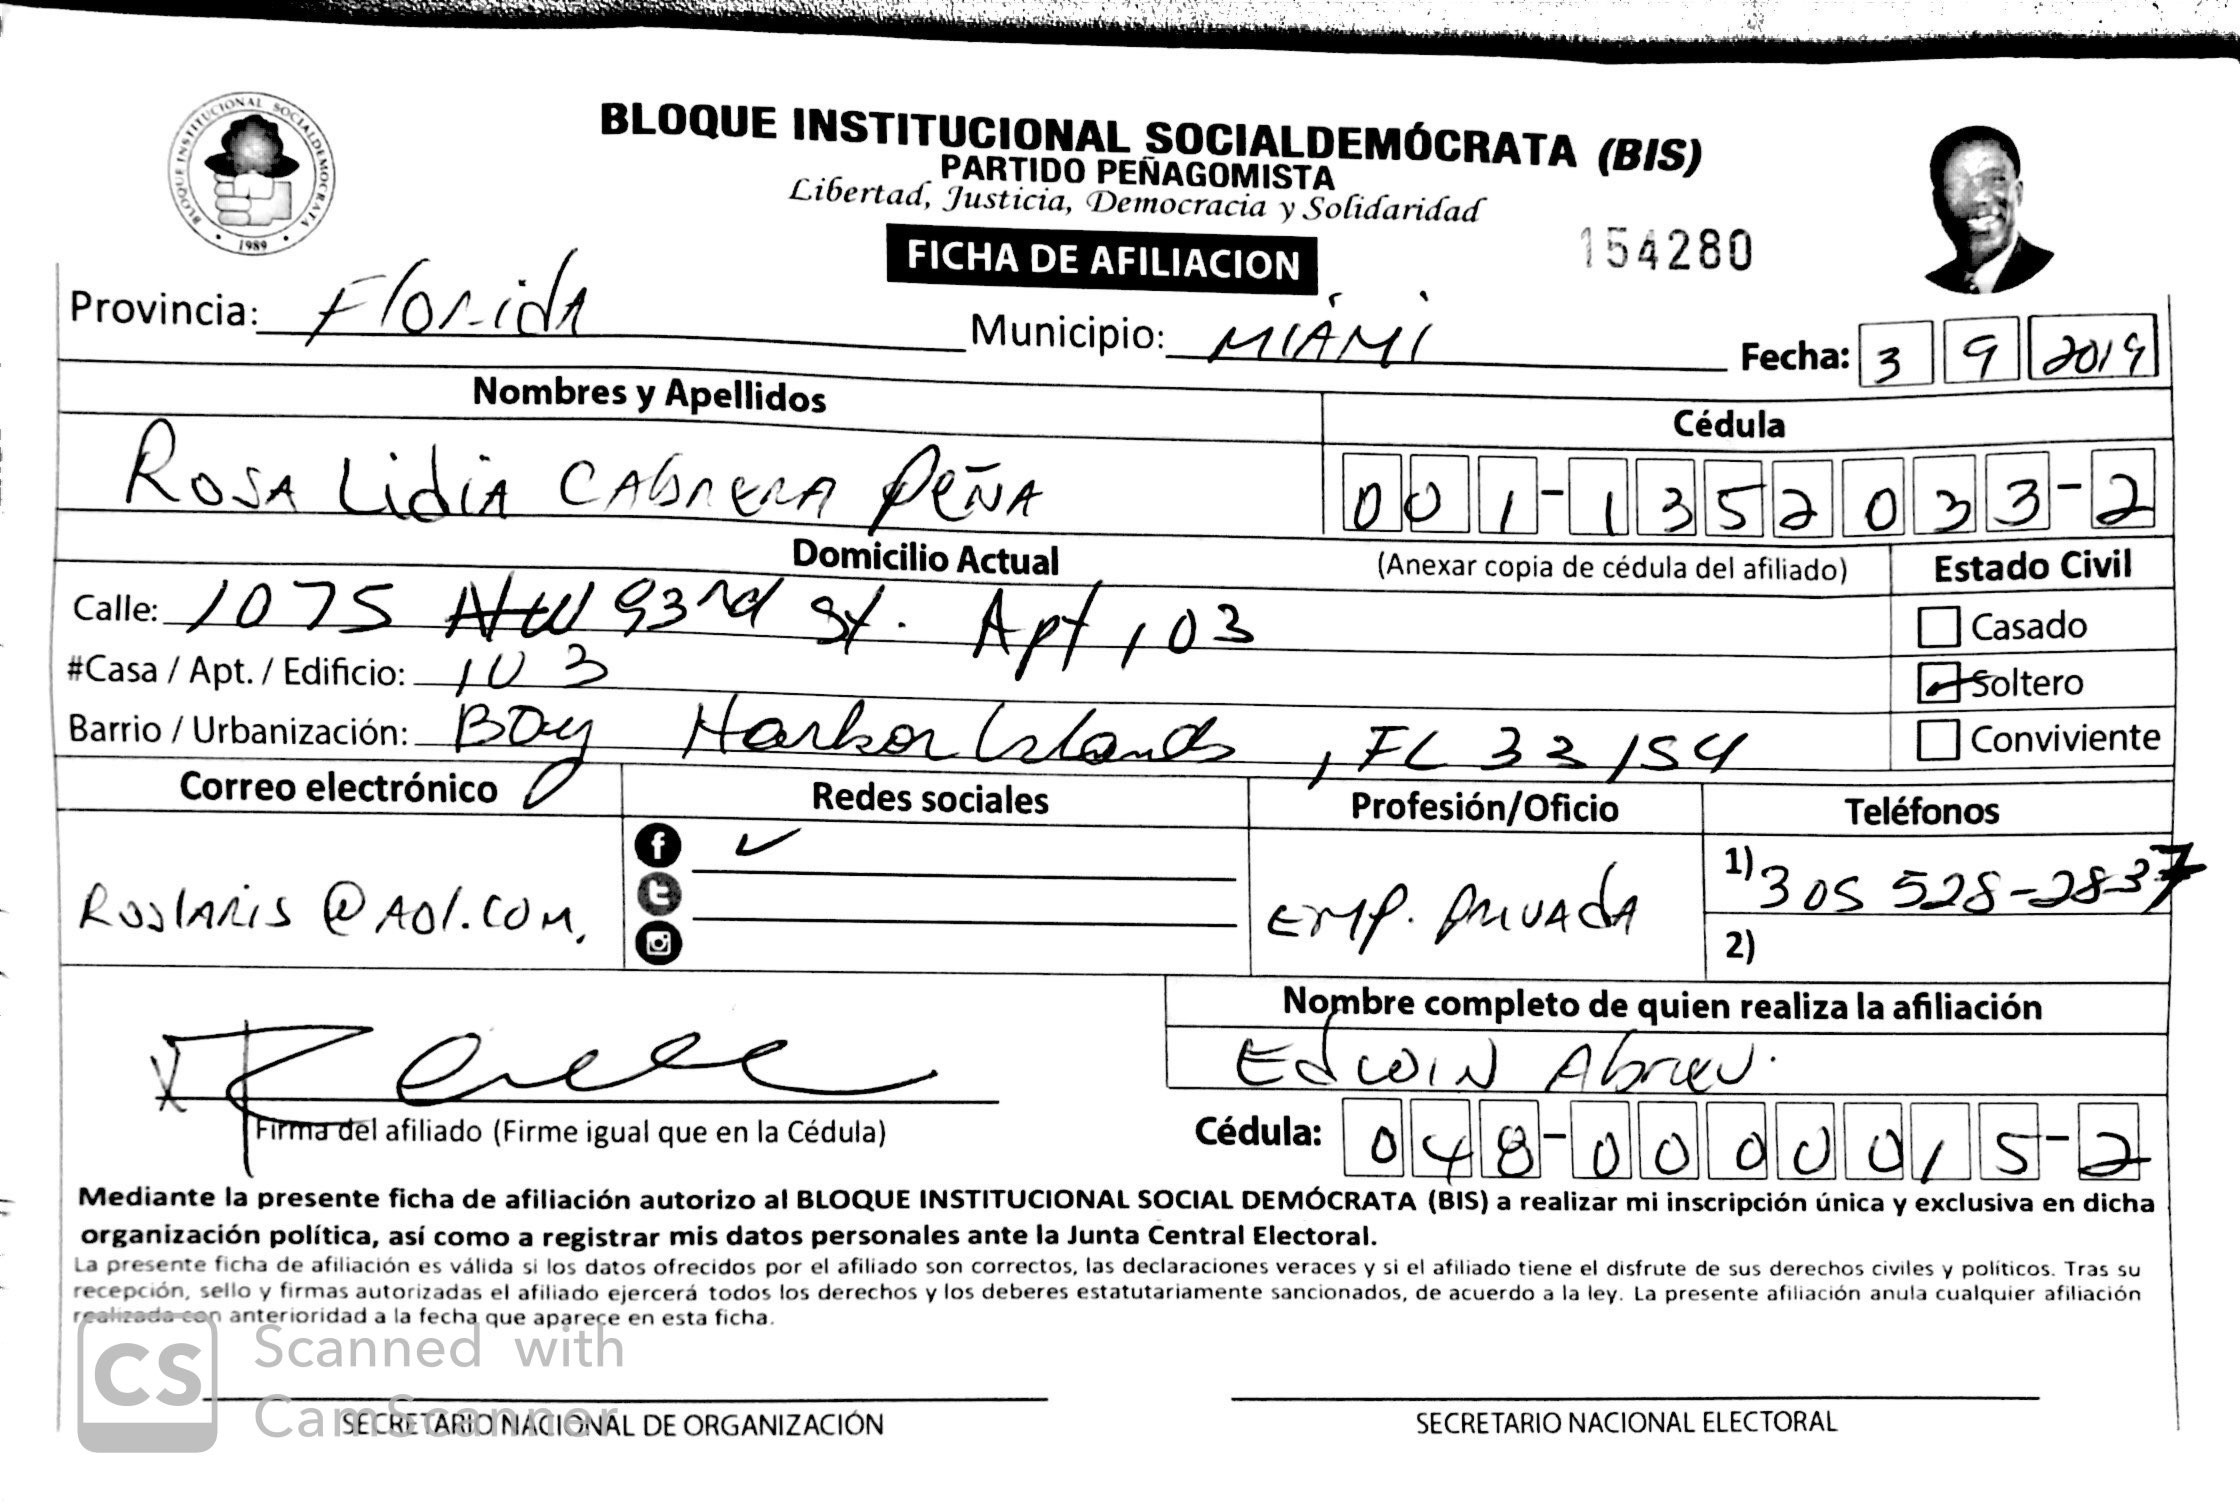 BLOQUE INSTITUCIONAL SOCIALDEMÓCRATA (BIS)
PARTIDO PEÑAGOMISTA
Libertad, Justicia, Democracia y Solidaridad
BLOQUE INSTITUCIONAL SOCIALDEMOCRATA
1989
FICHA DE AFILIACION
154280
Provincia: Florida Municipio: MIAMI Fecha: 3 9 2019
Nombres y Apellidos Cédula
ROSA Lidia CABRERA PEÑA 001-1352033-2
Domicilio Actual (Anexar copia de cédula del afiliado) Estado Civil
Calle: 1075 NW 93rd St. Apt 103 Casado
#Casa / Apt. / Edificio: 103 Soltero
Barrio / Urbanización: Bay Harbor Islands, FL 33154 Conviviente
Correo electrónico Redes sociales Profesión/Oficio Teléfonos
Roslaris@AOl.COM. EMP. PRIVADA 1) 305 528-2837
2)
Nombre completo de quien realiza la afiliación
EDWIN Abreu.
Firma del afiliado (Firme igual que en la Cédula) Cédula: 048-0000015-2
Mediante la presente ficha de afiliación autorizo al BLOQUE INSTITUCIONAL SOCIAL DEMÓCRATA (BIS) a realizar mi inscripción única y exclusiva en dicha
organización política, así como a registrar mis datos personales ante la Junta Central Electoral.
La presente ficha de afiliación es válida si los datos ofrecidos por el afiliado son correctos, las declaraciones veraces y si el afiliado tiene el disfrute de sus derechos civiles y políticos. Tras su
recepción, sello y firmas autorizadas el afiliado ejercerá todos los derechos y los deberes estatutariamente sancionados, de acuerdo a la ley. La presente afiliación anula cualquier afiliación
realizada con anterioridad a la fecha que aparece en esta ficha.
CS Scanned with
CamScanner
SECRETARIO NACIONAL DE ORGANIZACIÓN SECRETARIO NACIONAL ELECTORAL